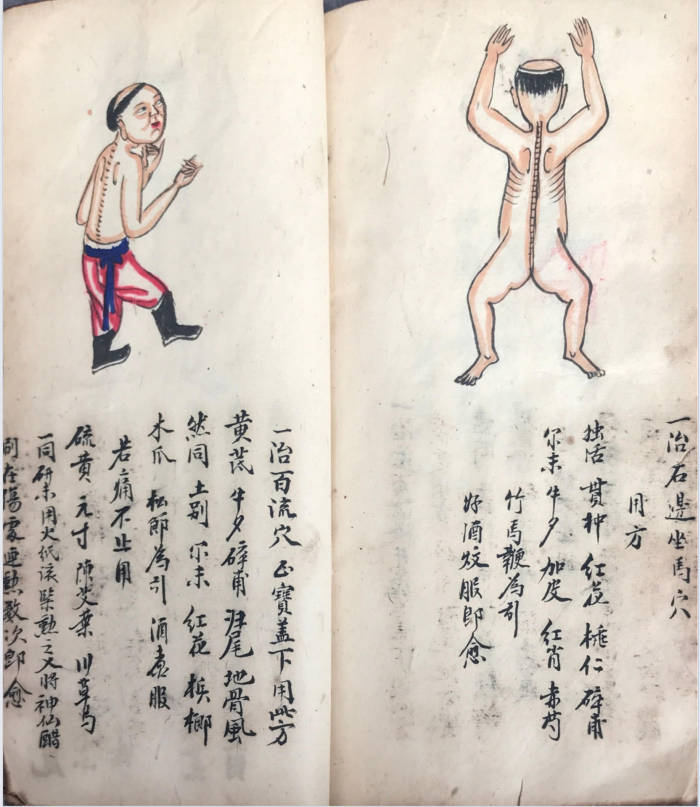 一治石邊坐馬穴
用方
独活 貫仲 紅花 桃仁 碎甫
尔未 牛夕 加皮 紅肖 赤芍
竹馬鞭為引
好酒炆服即愈
一治百流穴 正寶盖下用此方
黄芪 牛夕 碎甫 归尾 地骨風
然同 土别 尔未 紅花 槟榔
木瓜 松節為引 酒煮服
若痛不止用
硫黄 元寸 陳艾葉 川草乌
一同研末用火低滚 熏之又將神仙醋
在傷處運熏数次即愈